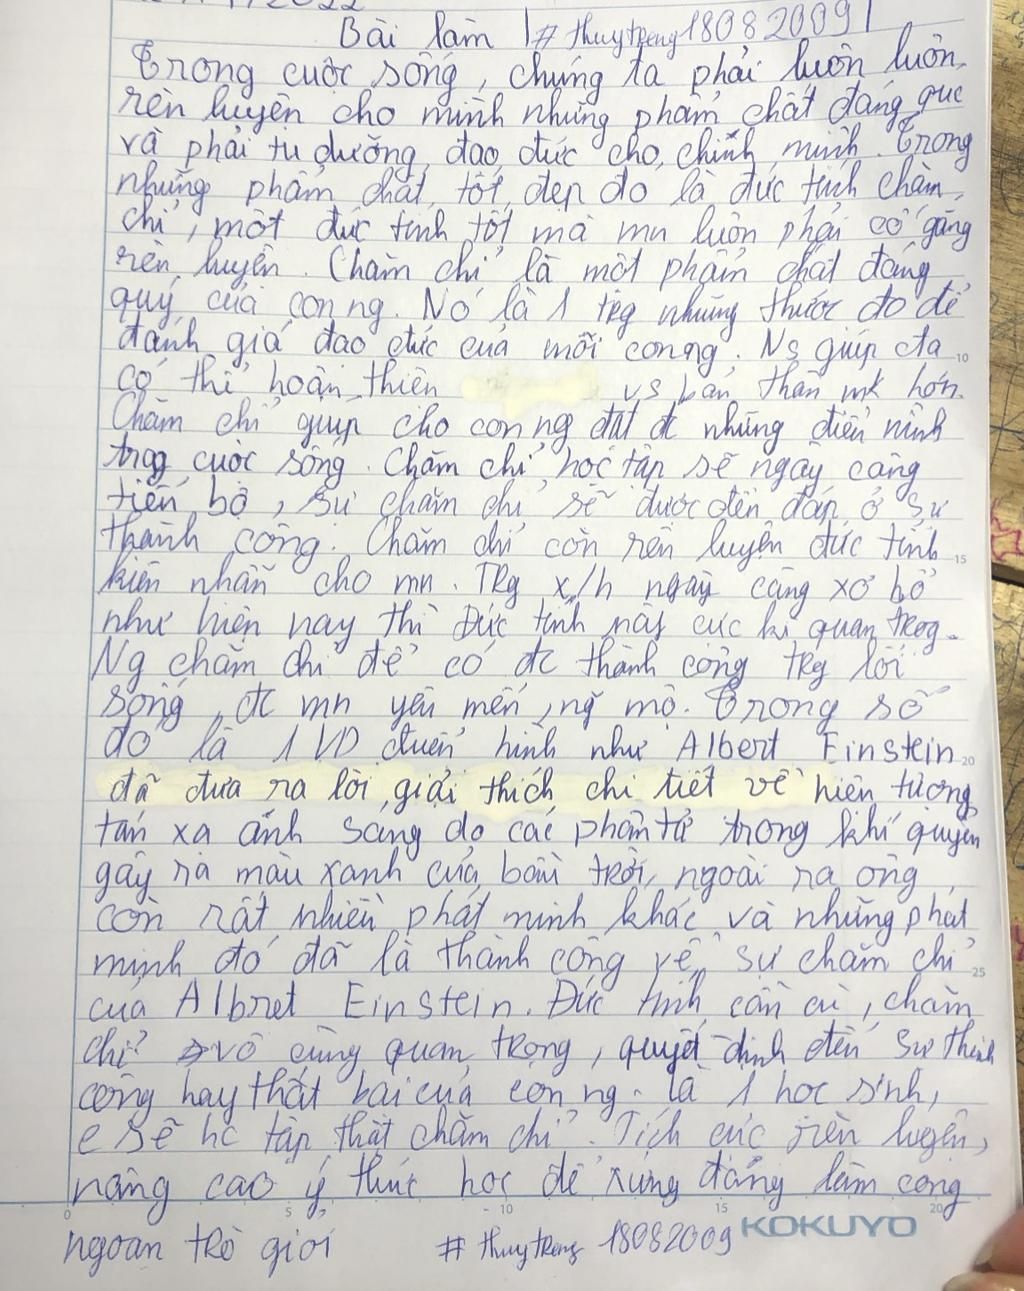 Bài làm | # thuytrang18082009 |
Trong cuộc sống, chúng ta phải luôn luôn
rèn luyện cho mình những phẩm chất đáng quc
và phải tu dưỡng đạo đức cho chính mình. Trong
những phẩm chất tốt đẹp đó là đức tính chăm
chỉ, một đức tính tốt mà mn luôn phải cố gắng
rèn luyện. Chăm chỉ là một phẩm chất đáng
quý của con ng. Nó là 1 trg những thước đo để
đánh giá đạo đức của mỗi con ng. Ns giúp cta 10
có thể hoàn thiện vs bản thân mk hơn.
Chăm chỉ giúp cho con ng đạt đc những điều mình
trog cuộc sống. Chăm chỉ học tập sẽ ngày càng
tiến bộ, sự chăm chỉ sẽ được đền đáp ở sự
thành công. Chăm chỉ còn rèn luyện đức tính 15
kiên nhẫn cho mn. Trg x/h ngày càng xơ bổ
như hiện nay thì Đức tính này cực kì quan trog.
Ng chăm chỉ để có đc thành công trg lối
sống, đc mn yêu mến, ng mộ. Trong số
đó là 1 VD điển hình như Albert Einstein 20
đã đưa ra lời giải thích chi tiết về hiện tượng
tán xạ ánh sáng do các phân tử trong khí quyển
gây ra màu xanh của bầu trời, ngoài ra ông
còn rất nhiều phát minh khác và những phát
minh đó đã là thành công về sự chăm chỉ 25
của Albret Einstein. Đức tính cần cù, chăm
chỉ vô cùng quan trọng, quyết định đến sự thành
công hay thất bại của con ng. là 1 học sinh,
e sẽ hc tập thật chăm chỉ. Tích cực rèn luyện,
nâng cao ý thức học để xứng đáng làm con
0 5 10 15 20 KOKUYO
ngoan trò giỏi # thuytrang 18082009